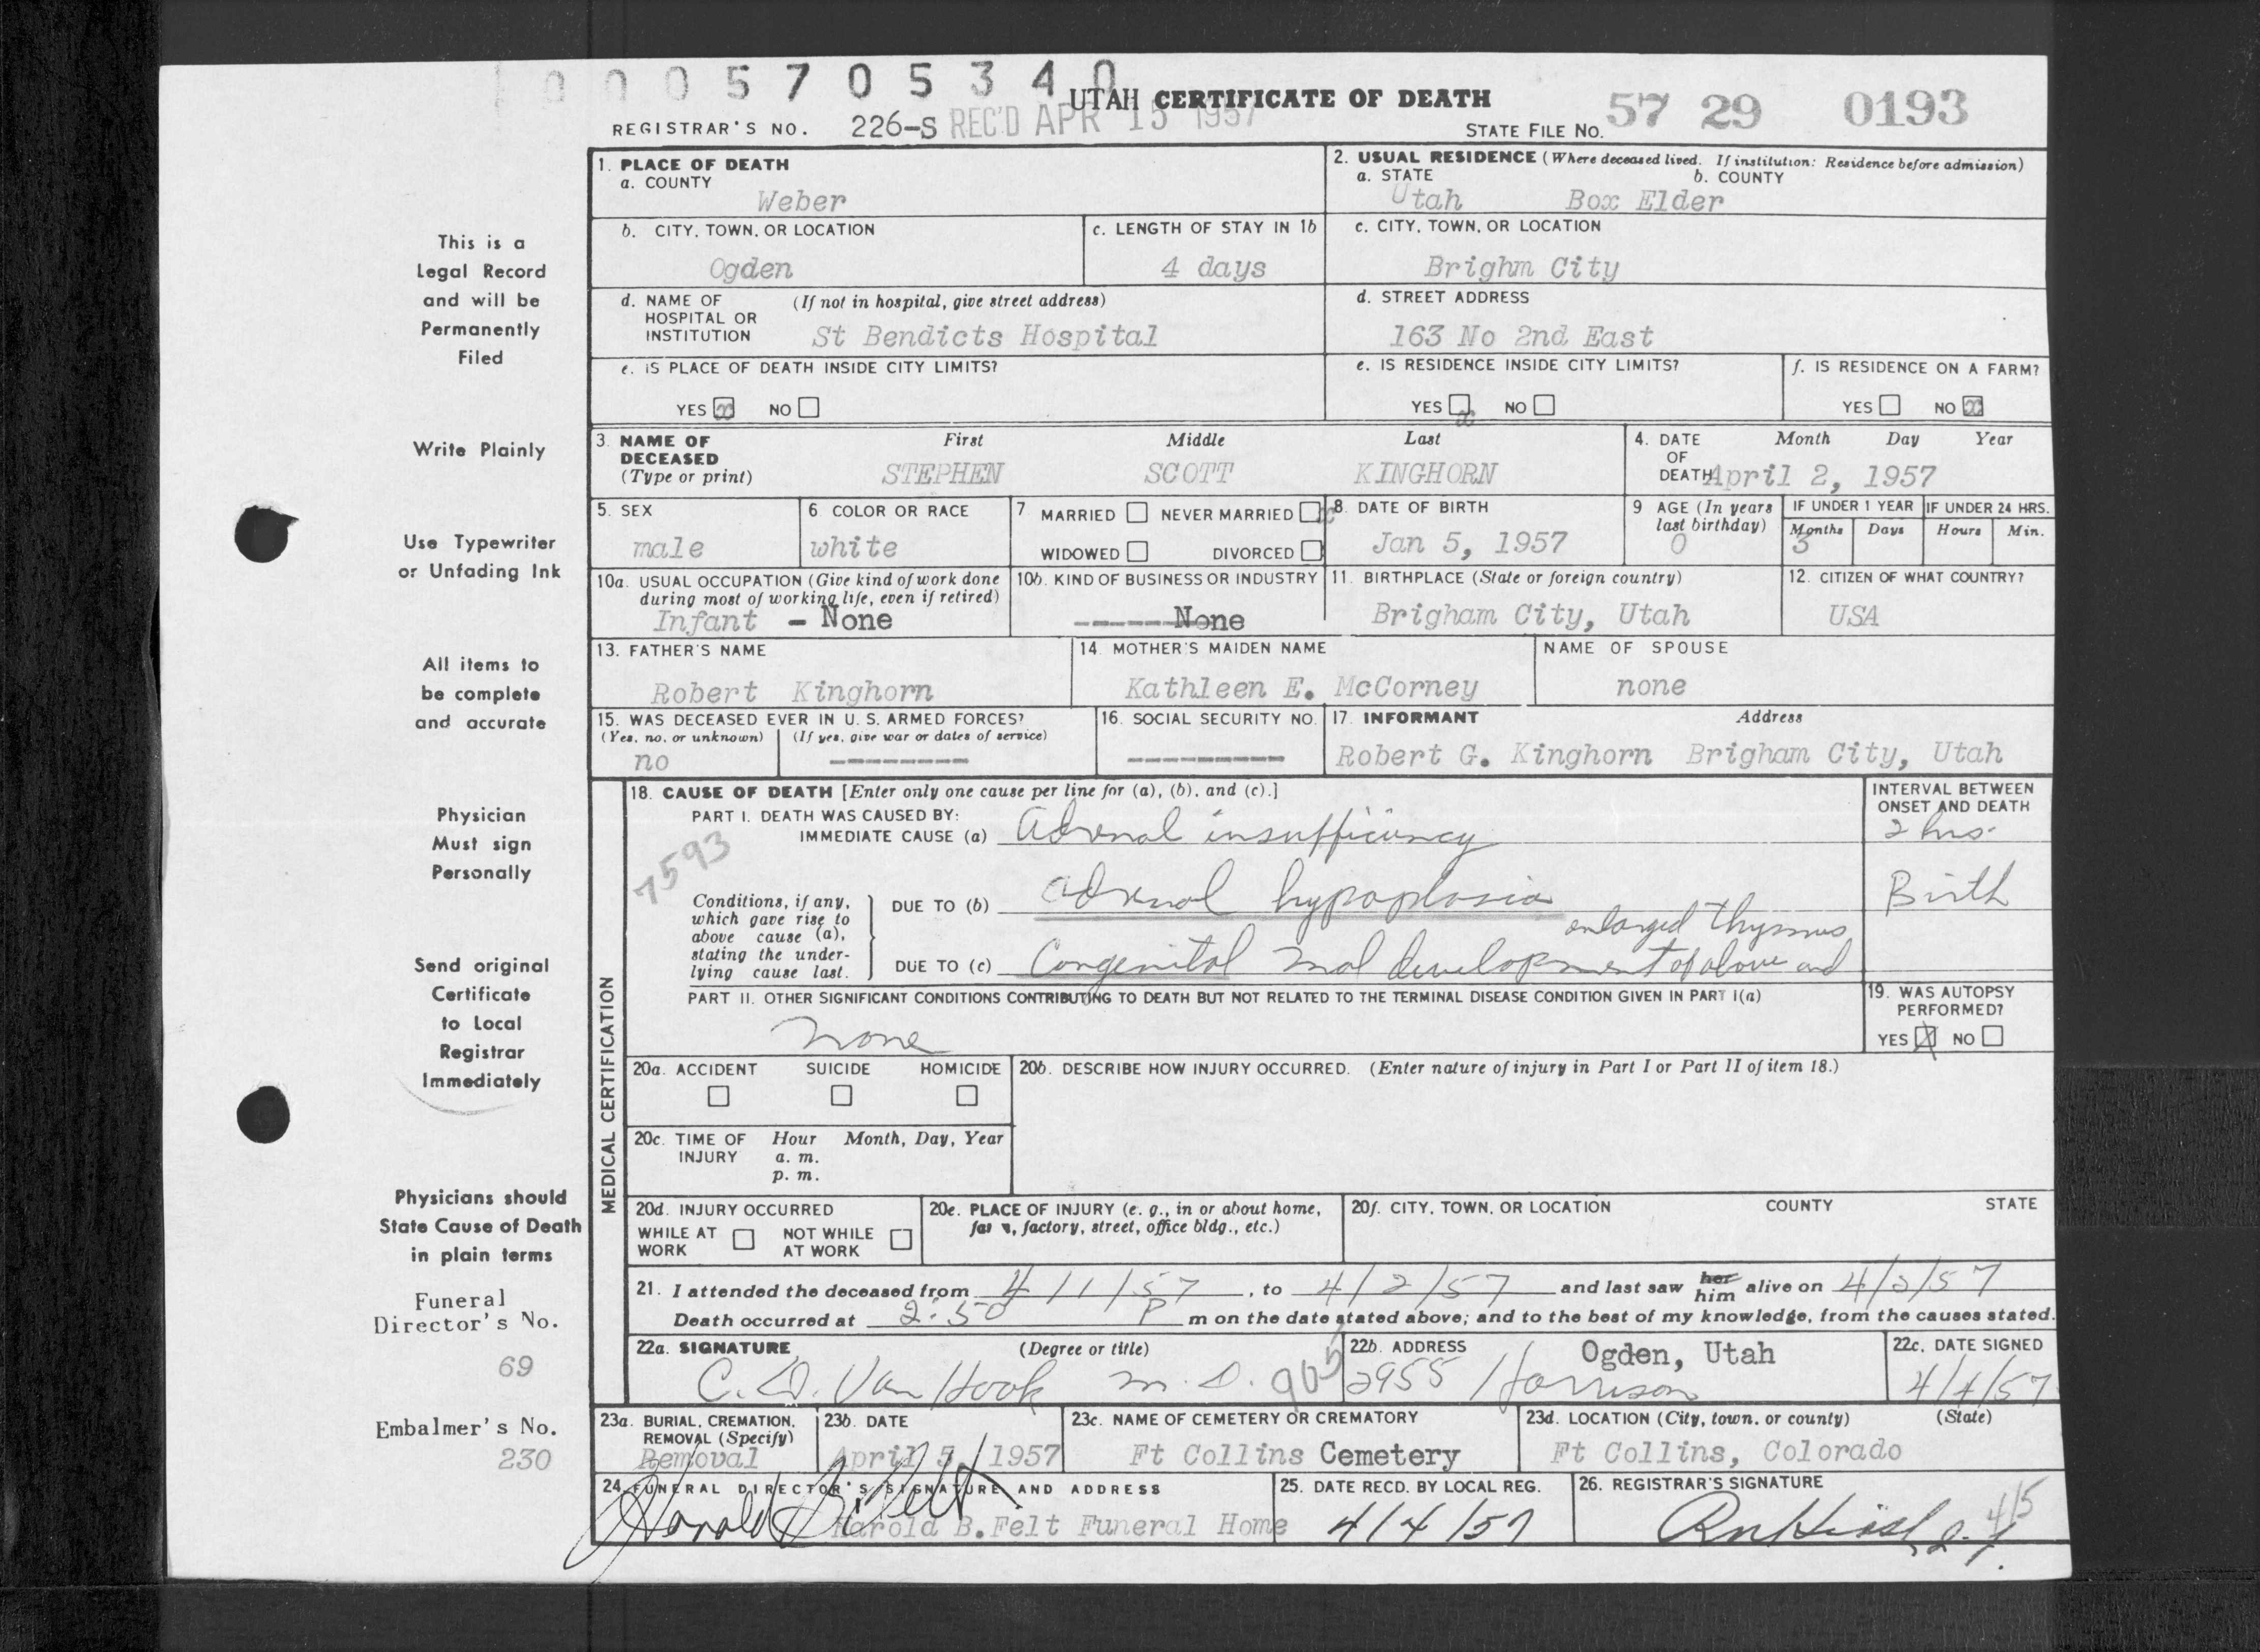 0 0 0 5 7 0 5 3 4 0
UTAH CERTIFICATE OF DEATH
REGISTRAR'S NO. 226-S REC'D APR 15 1957
STATE FILE NO. 57 29 0193
1. PLACE OF DEATH
a. COUNTY
Weber
2. USUAL RESIDENCE (Where deceased lived. If institution: Residence before admission)
a. STATE b. COUNTY
Utah Box Elder
b. CITY, TOWN, OR LOCATION
Ogden
c. LENGTH OF STAY IN 1b
4 days
c. CITY, TOWN, OR LOCATION
Brighm City
d. NAME OF (If not in hospital, give street address)
HOSPITAL OR
INSTITUTION St Bendicts Hospital
d. STREET ADDRESS
163 No 2nd East
e. IS PLACE OF DEATH INSIDE CITY LIMITS?
YES x NO
e. IS RESIDENCE INSIDE CITY LIMITS?
YES x NO
f. IS RESIDENCE ON A FARM?
YES NO x
3. NAME OF First Middle Last
DECEASED
(Type or print) STEPHEN SCOTT KINGHORN
4. DATE Month Day Year
OF
DEATH April 2, 1957
5. SEX
male
6. COLOR OR RACE
white
7 MARRIED NEVER MARRIED x
WIDOWED DIVORCED
8. DATE OF BIRTH
Jan 5, 1957
9 AGE (In years
last birthday)
0
IF UNDER 1 YEAR IF UNDER 24 HRS.
Months Days Hours Min.
3
10a. USUAL OCCUPATION (Give kind of work done
during most of working life, even if retired)
Infant - None
10b. KIND OF BUSINESS OR INDUSTRY
------None
11. BIRTHPLACE (State or foreign country)
Brigham City, Utah
12. CITIZEN OF WHAT COUNTRY?
USA
13. FATHER'S NAME
Robert Kinghorn
14. MOTHER'S MAIDEN NAME
Kathleen E. McCorney
NAME OF SPOUSE
none
15. WAS DECEASED EVER IN U. S. ARMED FORCES?
(Yes, no, or unknown) (If yes, give war or dates of service)
no ---------
16. SOCIAL SECURITY NO.
----------
17. INFORMANT Address
Robert G. Kinghorn Brigham City, Utah
18. CAUSE OF DEATH [Enter only one cause per line for (a), (b), and (c).]
PART I. DEATH WAS CAUSED BY:
IMMEDIATE CAUSE (a) Adrenal insufficiency
INTERVAL BETWEEN
ONSET AND DEATH
2 hrs.
7593
Conditions, if any,
which gave rise to
above cause (a),
stating the under-
lying cause last.
DUE TO (b) adrenal hypoplasia
Birth
enlarged thymus
DUE TO (c) Congenital mal development of above and
PART II. OTHER SIGNIFICANT CONDITIONS CONTRIBUTING TO DEATH BUT NOT RELATED TO THE TERMINAL DISEASE CONDITION GIVEN IN PART I(a)
none
19. WAS AUTOPSY
PERFORMED?
YES X NO
MEDICAL CERTIFICATION
20a. ACCIDENT SUICIDE HOMICIDE
20b. DESCRIBE HOW INJURY OCCURRED. (Enter nature of injury in Part I or Part II of item 18.)
20c. TIME OF Hour Month, Day, Year
INJURY a. m.
p. m.
20d. INJURY OCCURRED
WHILE AT NOT WHILE
WORK AT WORK
20e. PLACE OF INJURY (e. g., in or about home,
farm, factory, street, office bldg., etc.)
20f. CITY, TOWN, OR LOCATION COUNTY STATE
21. I attended the deceased from 4/1/57, to 4/2/57 and last saw her him alive on 4/2/57
Death occurred at 2:50 P m on the date stated above; and to the best of my knowledge, from the causes stated.
22a. SIGNATURE (Degree or title)
C. D. Van Hook M. D. 905
22b. ADDRESS Ogden, Utah
2955 Harrison
22c. DATE SIGNED
4/4/57
23a. BURIAL, CREMATION,
REMOVAL (Specify)
Removal
23b. DATE
April 5, 1957
23c. NAME OF CEMETERY OR CREMATORY
Ft Collins Cemetery
23d. LOCATION (City, town, or county) (State)
Ft Collins, Colorado
24. FUNERAL DIRECTOR'S SIGNATURE AND ADDRESS
Harold B. Felt
Harold B.Felt Funeral Home
25. DATE RECD. BY LOCAL REG.
4/4/57
26. REGISTRAR'S SIGNATURE
4/5
This is a
Legal Record
and will be
Permanently
Filed
Write Plainly
Use Typewriter
or Unfading Ink
All items to
be complete
and accurate
Physician
Must sign
Personally
Send original
Certificate
to Local
Registrar
Immediately
Physicians should
State Cause of Death
in plain terms
Funeral
Director's No.
69
Embalmer's No.
230